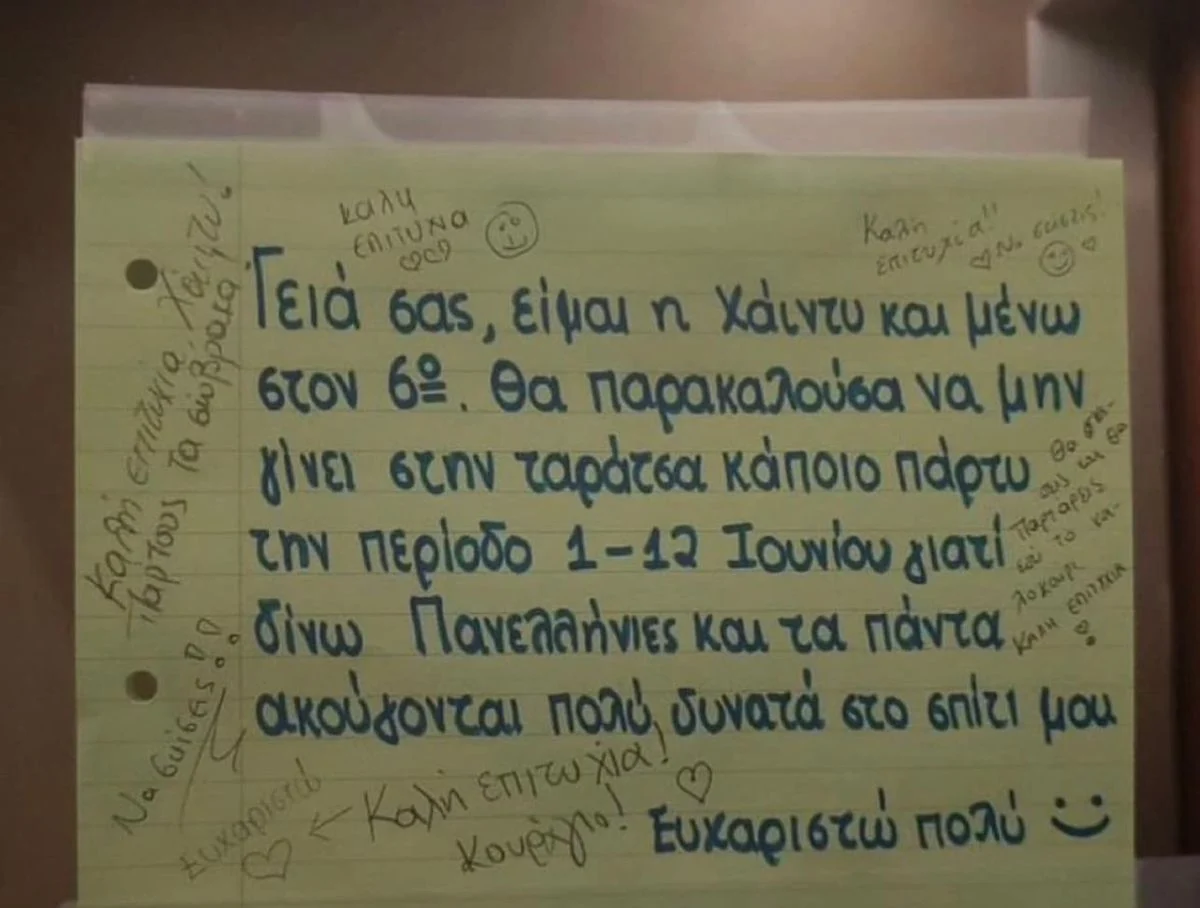 καλη
επιτυχια
Καλη
επιτυχία!!
Να σκίσεις!
Γειά σας, είμαι η Χάιντυ και μένω
στον 6º. Θα παρακαλούσα να μην
γίνει στην ταράτσα κάποιο πάρτυ
την περίοδο 1-12 Ιουνίου γιατί
δίνω Πανελλήνιες και τα πάντα
ακούγονται πολύ δυνατά στο σπίτι μου
Ευχαριστώ πολύ :)
Θα
και θα
παρταρεις
το κα-
λοκαιρι
ΚΑΛΗ ΕΠΙΤΥΧΙΑ
Καλή επιτυχία Χάιντυ!
Παρτους τα σώβρακα
Να σκίσεις!!
Ευχαριστώ
← Καλή επιτυχία!
Κουράγιο!